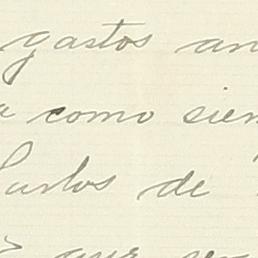 gastos an
a como sien
Carlos de
que